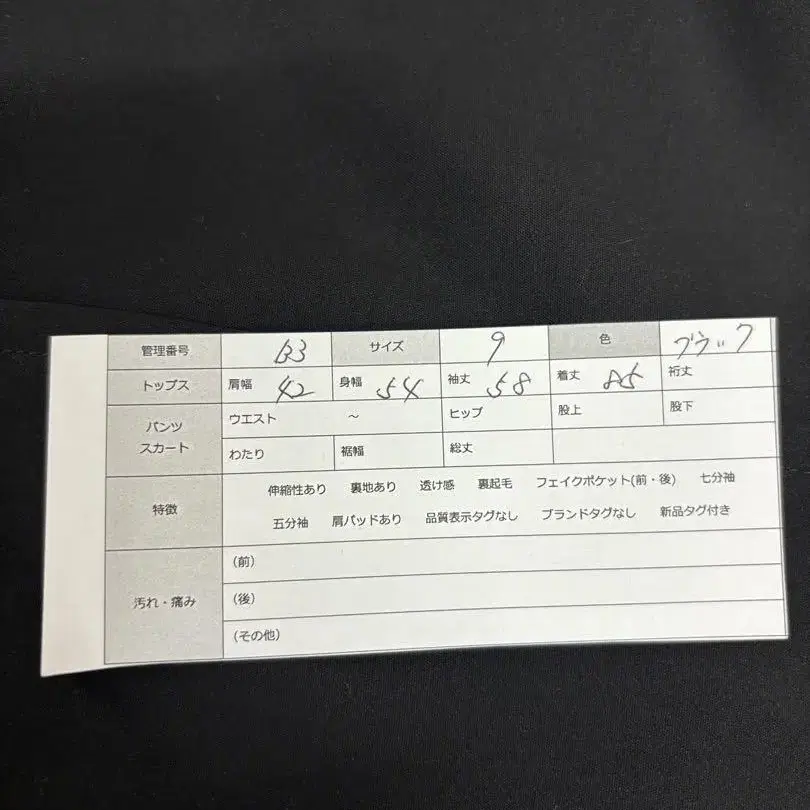 管理番号 B3 サイズ 9 色 ブラック
トップス 肩幅 42 身幅 54 袖丈 58 着丈 85 裄丈
パンツ スカート ウエスト ～ ヒップ 股上 股下
わたり 裾幅 総丈
特徴 伸縮性あり 裏地あり 透け感 裏起毛 フェイクポケット(前・後) 七分袖
五分袖 肩パッドあり 品質表示タグなし ブランドタグなし 新品タグ付き
汚れ・痛み (前)
(後)
(その他)